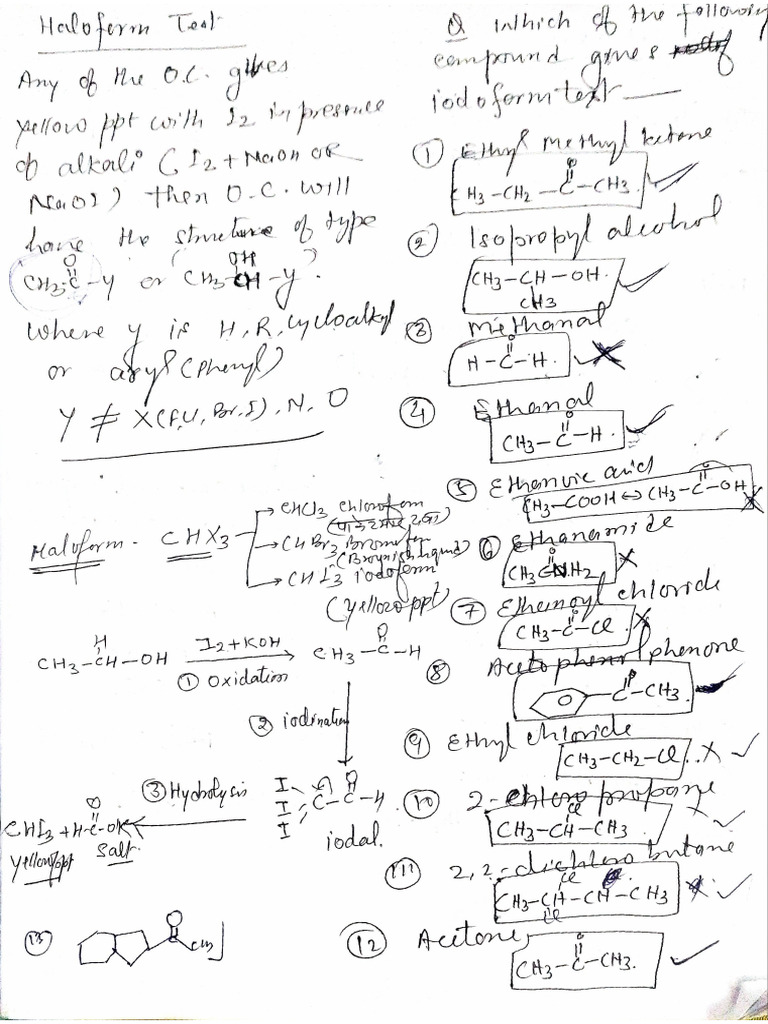 Haloform Test
Any of the O.C. gives
yellow ppt with I2 in presence
of alkali (I2 + NaOH OR
NaOI) then O.C. will
have the structure of type
O
CH3-C-Y or CH3-CH-Y.
OH
Where Y is H, R, Cycloalkyl
or aryl (Phenyl)
Y ≠ X(F, Cl, Br, I), N, O
Haloform - CHX3
CHCl3 chloroform
CHBr3 Bromoform
(Brownish liquid)
CHI3 iodoform
(Yellow ppt)
H
CH3-CH-OH
I2+KOH
① Oxidation
O
CH3-C-H
② iodination
I
I
I
C-C-H
O
iodal.
③ Hydrolysis
O
CHI3 + H-C-OK
yellow ppt
Salt
13
O
CH3
Q Which of the following
compound gives
iodoform test
① Ethyl Methyl ketone
O
H3-CH2-C-CH3
② Isopropyl alcohol
CH3-CH-OH.
CH3
③ Methanal
O
H-C-H.
④ Ethanal
O
CH3-C-H.
⑤ Ethanoic acid
O
CH3-COOH ↔ CH3-C-OH
⑥ Ethanamide
O
CH3CNH2
⑦ Ethanoyl chloride
O
CH3-C-Cl
⑧
O
C-CH3.
⑨ Ethyl chloride
CH3-CH2-Cl
⑩ 2-chloro propane
Cl
CH3-CH-CH3
11 2,2-dichloro butane
Cl
CH3-CH-CH-CH3
Cl
12 Acetone
O
CH3-C-CH3.